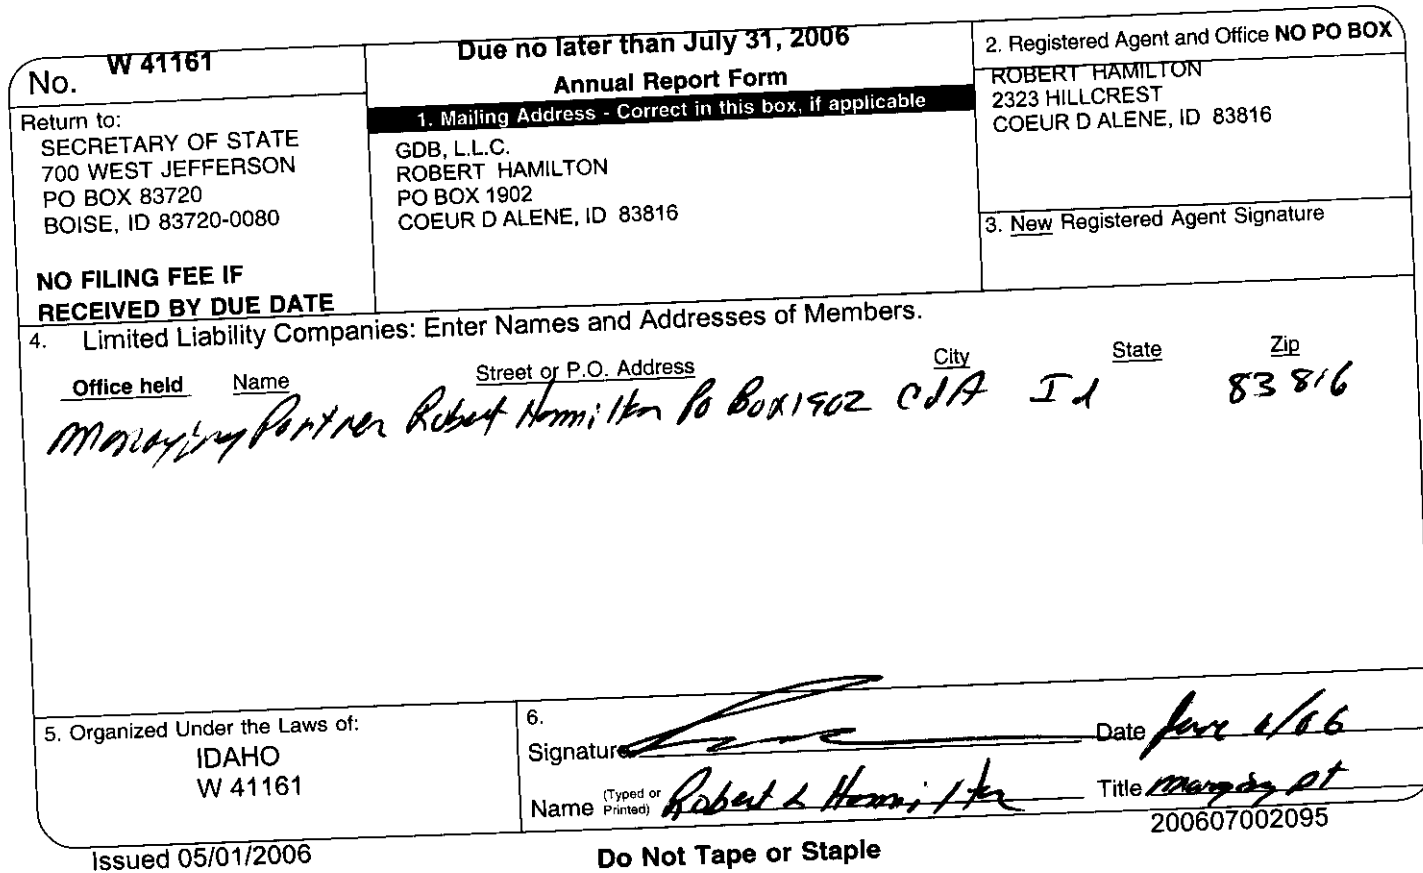 No. W 41161
Return to:
SECRETARY OF STATE
700 WEST JEFFERSON
PO BOX 83720
BOISE, ID 83720-0080
NO FILING FEE IF
RECEIVED BY DUE DATE
Due no later than July 31, 2006
Annual Report Form
1. Mailing Address - Correct in this box, if applicable
GDB, L.L.C.
ROBERT HAMILTON
PO BOX 1902
COEUR D ALENE, ID 83816
2. Registered Agent and Office NO PO BOX
ROBERT HAMILTON
2323 HILLCREST
COEUR D ALENE, ID 83816
3. New Registered Agent Signature
4. Limited Liability Companies: Enter Names and Addresses of Members.
Office held Name Street or P.O. Address City State Zip
Managing Partner Robert Hamilton Po Box 1902 CdA Id 83816
5. Organized Under the Laws of:
IDAHO
W 41161
6.
Signature Date June /06
Name (Typed or Printed) Robert L Hamilton Title managing pt
200607002095
Issued 05/01/2006
Do Not Tape or Staple